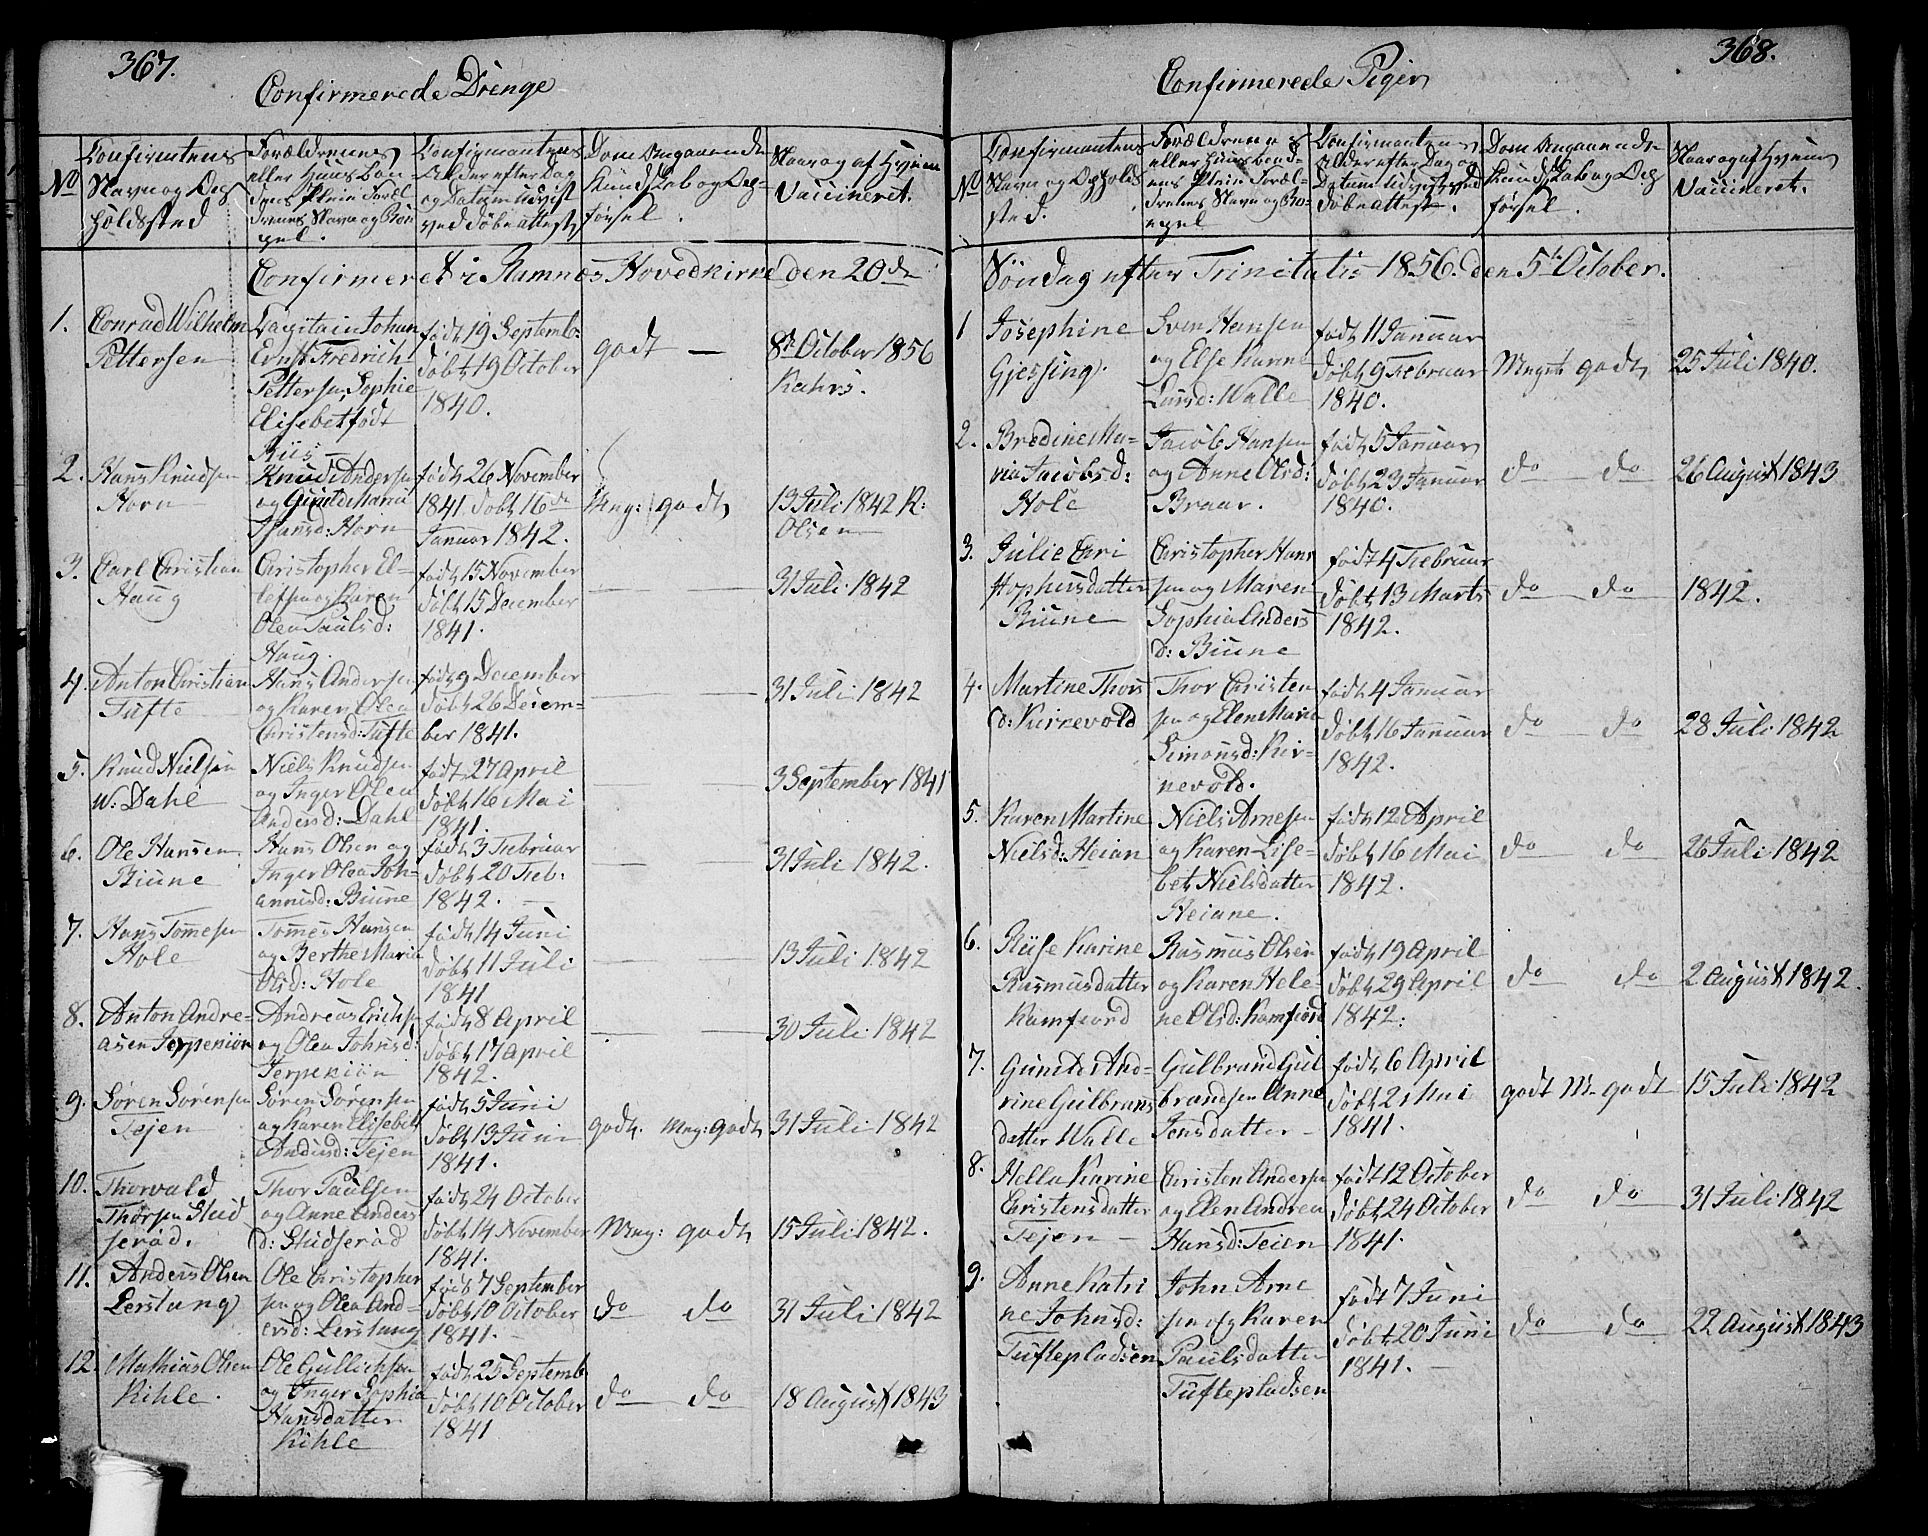 367.
Confirmerede Drenge
No
Confirmtens
Navn og Op
holdssted
Forældrenes
eller Huusbon
dens Pleie Foræl
drenes Navn og Bo
pel.
Confirmantens
Alder efter Dag
og Datum udvist
ved Døbeattest
Dom Angaaende
Kundskab og Op-
førsel.
Naar og af Hvem
Vaccineret.
Confirmeret i Ramnes Hovedkirke den 20de
1.
Conrad Wilhelm
Pettersen
Capitain Johan
Ernst Fredrich
Pettersen, Sophie
Elisebet født
Riis
født 19 Septemb:
Døbt 19 October
1840.
godt —
8de October 1856
Kahrs.
2.
Hans Knudsen
Horn
Knud Andersen
og Gunte Maria
Hansd: Horn
født 26 November
1841. Døbt 16de
Januar 1842.
Mng: godt
13 Juli 1842 R:
Olsen
3.
Carl Christian
Haug
Christopher El-
lefsen og Karen
Olea Paulsd:
Haug.
født 15 November
Døbt 15 December
1841.
— —
31 Juli 1842
4.
Anton Christian
Tufte
Hans Andersen
og Karen Olea
Christensd: Tufte
født 9 December
Døbt 26 Decem-
ber 1841.
— —
31 Juli 1842
5.
Knud Nielsen
W: Dahl
Niels Knudsen
og Inger Olea
Andersd: Dahl
født 27 April
Døbt 16 Mai
1841.
— —
3 September 1841
6.
Ole Hansen
Biune
Hans Olsen og
Inger Olea Joh-
annisd: Biune
født 3 Februar
Døbt 20 Feb:
1842.
— —
31 Juli 1842.
7.
Hans Tomesen
Hole
Tomes Hansen
og Berthe Maria
Olsd: Hole
født 14 Juni
Døbt 11 Juli
1841
— —
13 Juli 1842
8.
Anton Andre-
asen Jerpekiøn
Andreas Erichsen
og Olea Johnsd:
Jerpekiøn
født 8 April
Døbt 17 April
1842.
— —
30 Juli 1842
9.
Søren Sørensen
Tejen
Søren Sørensen
og Karen Elisebet
Andersd: Tejen
født 5 Juni
Døbt 13 Juni
1841.
godt. Mng: godt
31 Juli 1842
10.
Thorvald
Thorsen Stud
serød.
Thor Paulsen
og Anne Anders
d: Studserød
født 24 October
Døbt 14 November
1841.
Mng: godt
15 Juli 1842.
11.
Anders Olsen
Lerstang
Ole Christopher
sen og Olea And-
ersd: Lerstang
født 7 September
Døbt 10 October
1841.
do do
31 Juli 1842
12.
Mathias Olsen
Kihle.
Ole Gullichsen
og Inger Sophia
Hansdatter
Kihle
født 25 Septemb
Døbt 10 October
1841
do do
18 August 1843
368.
Confirmerede Piger
No
Confirmantens
Navn og Opholds
sted.
Forældrenes
eller Huusbond-
ens Pleie Foræl-
drenes Navn og Bo-
pel
Confirmantens
Alder efter Dag og
Datum udvist ved
Døbeattest.
Dom Angaaende
Kundskab og Op
førsel.
Naar og af Hvem
Vaccineret.
Søndag efter Trinitatis 1856. den 5te October.
1
Josephine
Gjessing.
Sven Hansen
og Else Karine
Larsd: Walle
født 11 Januar
Døbt 9 Februar
1840.
Meget godt
25 Juli 1840.
2.
Bredine Ma-
ria Jacobsd:
Hole
Jacob Hansen
og Anne Olsd:
Braar.
født 5 Januar
Døbt 23 Januar
1840.
do do
26 August 1843
3.
Julie Chri
stophersdatter
Biune
Christopher Hans
sen og Maren
Sophia Anders
d: Biune
født 4 Februar
Døbt 13 Marts
1842.
do do
1842.
4.
Martine Thors
d: Kirkevold
Thor Christen
sen og Elen Maria
Simonsd: Kir-
kevold.
født 4 Januar
Døbt 16 Januar
1842.
do do
28 Juli 1842
5.
Karen Martine
Nielsd: Heian
Niels Arnesen
og Karen Lise-
bet Nielsdatter
Heiane.
født 12 April
Døbt 16 Mai
1842.
do do
26 Juli 1842
6.
Rise Karine
Rasmusdatter
Ramfjord
Rasmus Olsen
og Karen Hele-
ne Olsd: Ramfjord
født 19 April
Døbt 29 April
1842:
do do
2 August 1842.
7.
Gunild And-
rine Gulbrans
datter Walle
Gulbrand Gul
brandsen Anne
Jensdatter
født 6 April
Døbt 2 Mai
1841.
godt M. godt
15 Juli 1842
8.
Hella Karine
Christensdatter
Tejen
Christen Andersen
og Elen Andrea
Hansd: Teien
født 12 October
Døbt 24 October
1841.
do do
31 Juli 1842
9.
Anne Katri
ne Johnsd:
Tuftepladsen
John Arne
sen og Karen
Paulsdatter
Tuftepladsen
født 7 Juni
Døbt 20 Juni
1841.
do do
22 August 1843